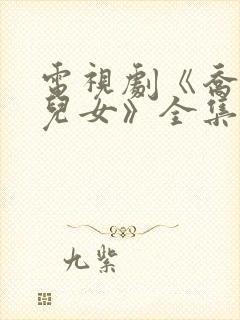 電視劇《喬
兒女》全集
九紫